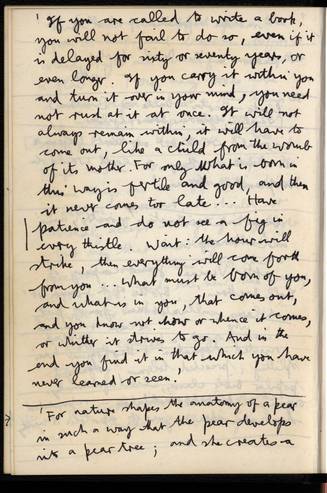 'If you are called to write a book,
you will not fail to do so, even if it
is delayed for sixty or seventy years, or
even longer. If you carry it within you
and turn it over in your mind, you need
not rush at it at once. It will not
always remain within; it will have to
come out, like a child from the womb
of its mother. For only what is born in
this way is fertile and good, and then
it never comes too late... Have
patience and do not see a fig in
every thistle. Wait: the hour will
strike, then everything will come forth
from you... What must be born of you,
and what is in you, that comes out,
and you know not how or whence it comes,
or whither it strives to go. And in the
end you find it in that which you have
never learned or seen.'
'For nature shapes the anatomy of a pear
in such a way that the pear develops
into a pear tree; and she creates a